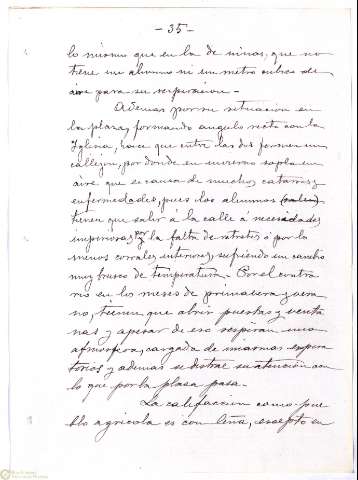 - 35 -
lo mismo que en la de niñas, que no
tiene un alumno ni un metro cubico de
aire para su respiracion -
Ademas por su situacion en
la plaza, formando angulo recto con la
Iglesia, hace que entre las dos formen un
callejon, por donde en invierno sopla un
aire que es causa de muchos catarros y
enfermedades, pues los alumnos
tienen que salir á la calle á necesidades
imperiosas, por la falta de retretes ó por lo
menos corrales interiores, sufriendo un cambio
muy brusco de temperatura. - Por el contra
rio en los meses de primavera y vera
no, tienen que abrir puertas y venta
nas y apesar de eso respiran una
atmosfera, cargada de miasmas respira
torios y ademas se distrae su atención con
lo que por la plaza pasa.
La calefaccion como pue
blo agricola es con leña, excepto en